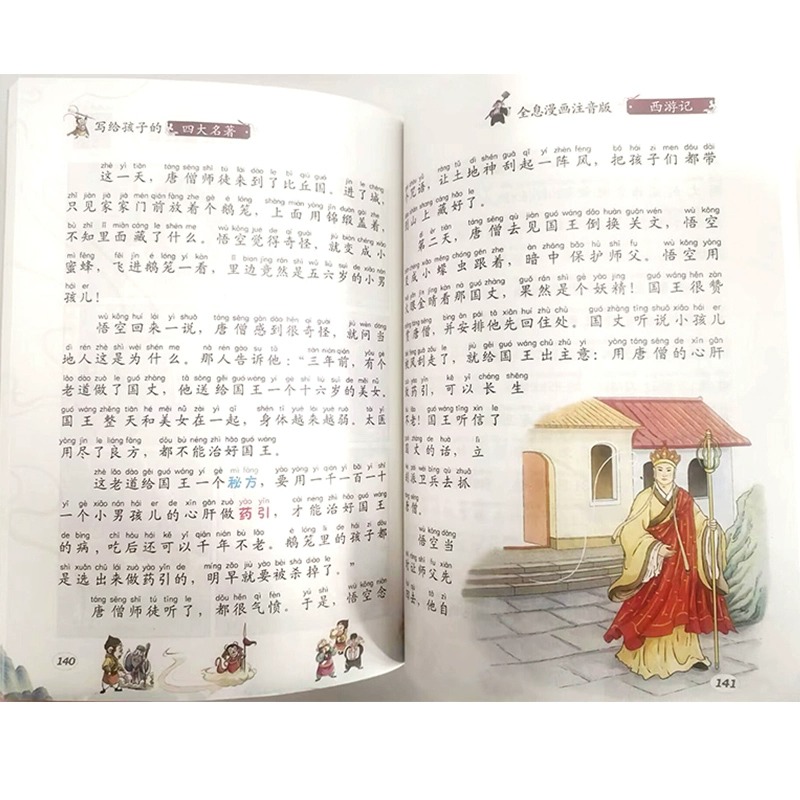 写给孩子的 四大名著
zhè yì tiān táng sēng shī tú lái dào le bǐ qiū guó jìn le chéng
这一天，唐僧师徒来到了比丘国。进了城，
zhǐ jiàn jiā jiā mén qián fàng zhe gè é lóng shàng miàn yòng jǐn duàn gài zhe
只见家家门前放着个鹅笼，上面用锦缎盖着，
bù zhī lǐ miàn cáng le shén me wù kōng jué de qí guài jiù biàn chéng xiǎo
不知里面藏了什么。悟空觉得奇怪，就变成小
mì fēng fēi jìn é lóng yí kàn lǐ biān jìng rán shì wǔ liù suì de xiǎo nán
蜜蜂，飞进鹅笼一看，里边竟然是五六岁的小男
hái er
孩儿！
wù kōng huí lái yì shuō táng sēng gǎn dào hěn qí guài jiù wèn dāng
悟空回来一说，唐僧感到很奇怪，就问当
dì rén zhè shì wèi shén me nà rén gào sù tā sān nián qián yǒu gè
地人这是为什么。那人告诉他：“三年前，有个
lǎo dào zuò le guó zhàng tā sòng gěi guó wáng yí gè shí liù suì de měi nǚ
老道做了国丈，他送给国王一个十六岁的美女。
guó wáng zhěng tiān hé měi nǚ zài yì qǐ shēn tǐ yuè lái yuè ruò tài yī
国王整天和美女在一起，身体越来越弱。太医
yòng jìn le liáng fāng dōu bù néng zhì hǎo guó wáng
用尽了良方，都不能治好国王。
zhè lǎo dào gěi guó wáng yí gè mì fāng yào yòng yì qiān yì bǎi yī shí
这老道给国王一个秘方，要用一千一百一十
yī gè xiǎo nán hái er de xīn gān zuò yào yǐn cái néng zhì hǎo guó wáng
一个小男孩儿的心肝做药引，才能治好国王
de bìng chī hòu hái kě yǐ qiān nián bù lǎo é lóng lǐ de hái zi dōu
的病，吃后还可以千年不老。鹅笼里的孩子都
shì xuǎn chū lái zuò yào yǐn de míng zǎo jiù yào bèi shā diào le
是选出来做药引的，明早就要被杀掉了。”
táng sēng shī tú tīng le dōu hěn qì fèn yú shì wù kōng niàn
唐僧师徒听了，都很气愤。于是，悟空念
140
全息漫画注音版 西游记
ràng tǔ dì shén guā qǐ yí zhèn fēng bǎ hái zi men dōu dài
咒语，让土地神刮起一阵风，把孩子们都带
shān shàng cáng hǎo le
到山上藏好了。
dì èr tiān táng sēng qù jiàn guó wáng dǎo huàn guān wén wù kōng
第二天，唐僧去见国王倒换关文，悟空
chéng xiǎo měng chóng gēn zhe àn zhōng bǎo hù shī fu wù kōng yòng
变成小蠓虫跟着，暗中保护师父。悟空用
yǎn jīn jīng kàn nà guó zhàng guǒ rán shì gè yāo jing guó wáng hěn zàn
火眼金睛看那国丈，果然是个妖精！国王很赞
táng sēng bìng ān pái tā xiān huí zhù chù guó zhàng tīng shuō xiǎo hái er
赏唐僧，并安排他先回住处。国丈听说小孩儿
bèi fēng guā zǒu le jiù gěi guó wáng chū zhǔ yi yòng táng sēng de xīn gān
被风刮走了，就给国王出主意：用唐僧的心肝
zuò yào yǐn kě yǐ cháng shēng
做药引，可以长生
bù lǎo guó wáng tīng xìn le
不老！国王听信了
guó zhàng de huà lì
国丈的话，立
kè pài wèi bīng qù zhuā
刻派卫兵去抓
táng sēng
唐僧。
wù kōng dāng
悟空当
ràng shī fu xiān
即让师父先
huí qù tā zì
回去，他自
141